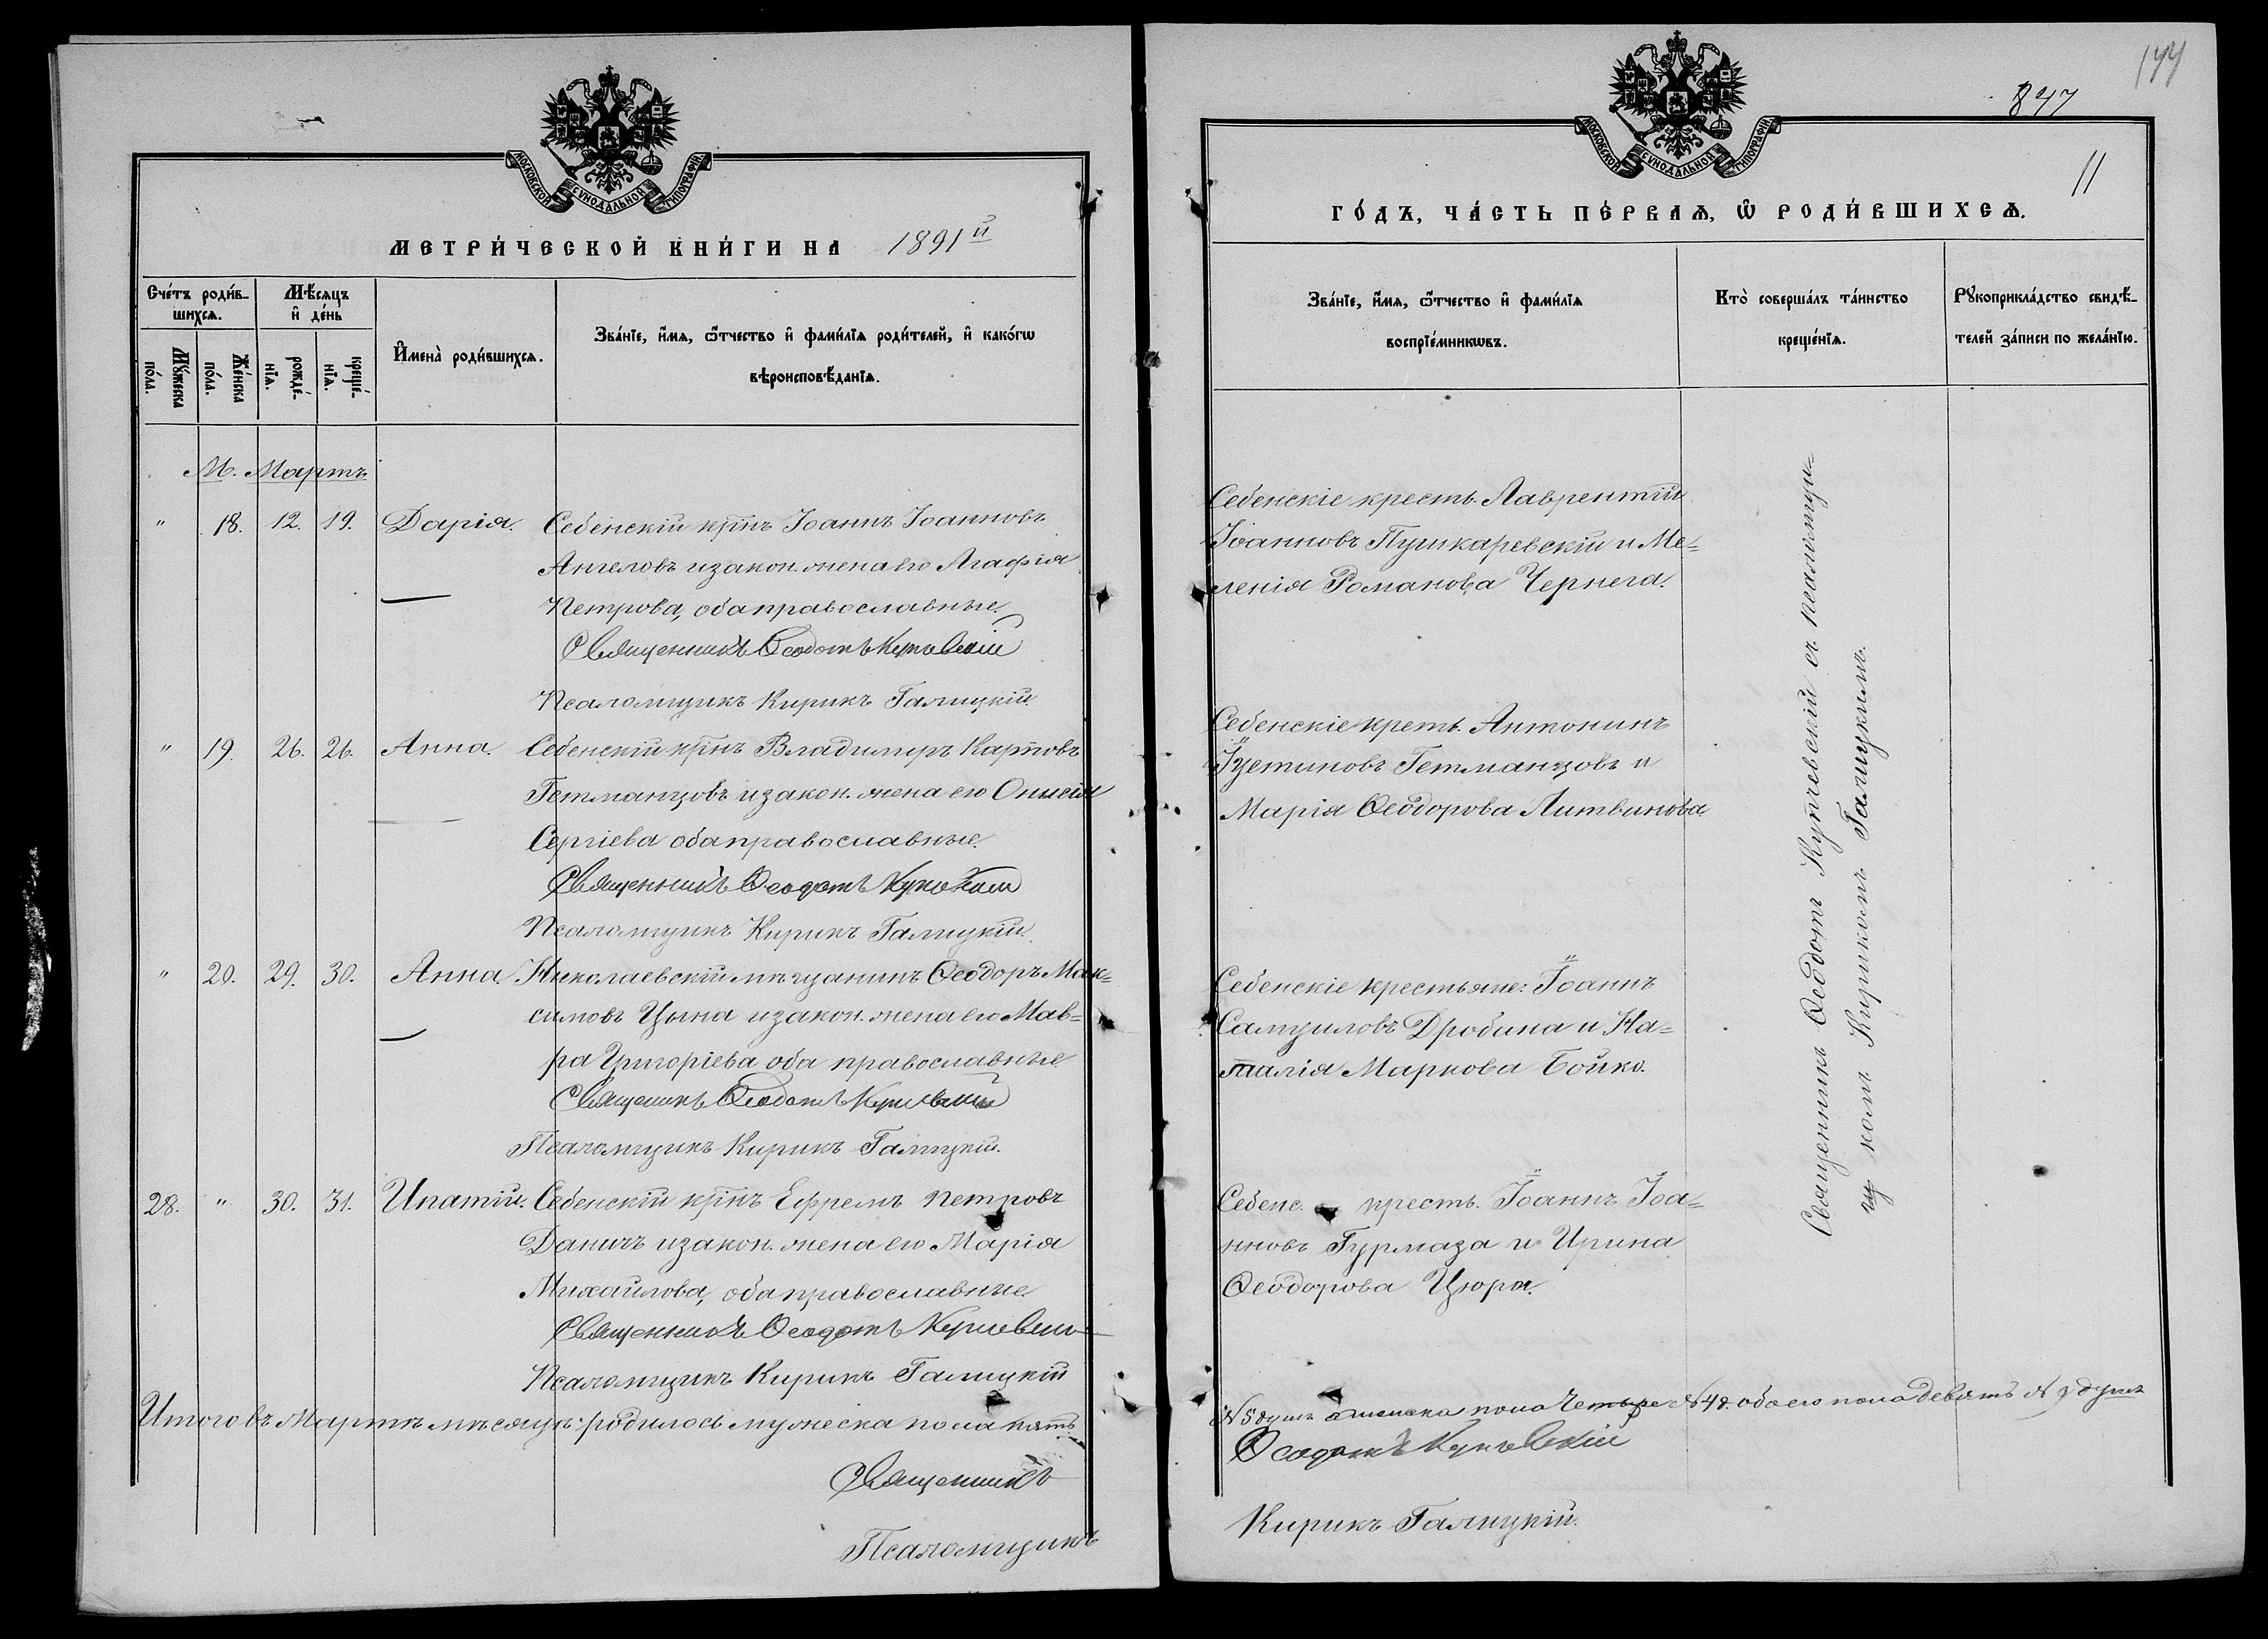 МОСКОВСКОЙ СѴНОДАЛЬНОЙ ТИПОГРАФІИ
МЕТРИ́ЧЕСКОЙ КНИ́ГИ НА 1891й
Сче́тъ роди́в-
шихсѧ.
Мꙋ́жеска
по́ла.
Же́нска
по́ла.
Мѣ́сѧцъ
и҆ де́нь
рожде́-
нїѧ.
креще́-
нїѧ.
И҆мена̀ роди́вшихсѧ.
Зва́нїе, и҆́мѧ, ѻ҆́тчество и҆ фами́лїѧ роди́телей, и҆ како́гѡ
вѣроисповѣ́данїѧ.
М. Мартъ
" 18. 12. 19. Дарія. Себенскій кр̃нъ Іоаннъ Іоанновъ
Ангеловъ и закон. жена его Агафія
Петрова, оба православные.
Священникъ Ѳеодотъ
Псаломщикъ Кирикъ Галицкій.
" 19. 26. 26. Анна. Себенскій кр̃нъ Владимиръ Карповъ
Гетманцовъ и закон. жена его Онисія
Сергіева оба православные.
Священникъ Ѳеодотъ
Псаломщикъ Кирикъ Галицкій.
" 20. 29. 30. Анна. Николаевскій мѣщанинъ Ѳеодоръ Мак=
симовъ Цына и закон. жена его Мав=
ра Григоріева оба православные.
Священникъ Ѳеодотъ
Псаломщикъ Кирикъ Галицкій.
28. " 30. 31. Ипатій. Себенскій кр̃нъ Ефремъ Петровъ
Даничъ и закон. жена его Марія
Михаилова, оба православные.
Священникъ Ѳеодотъ
Псаломщикъ Кирикъ Галицкій
Итого въ Мартѣ мѣсяцѣ: родилось мужеска пола пять
Священникъ
Псаломщикъ
144
847
11
МОСКОВСКОЙ СѴНОДАЛЬНОЙ ТИПОГРАФІИ
ГО́ДЪ, ЧА́СТЬ ПЕ́РВАѦ, Ѡ҆ РОДИ́ВШИХСѦ.
Зва́нїе, и҆́мѧ, ѻ҆́тчество и҆ фами́лїѧ
воспрїе́мникѡвъ.
Кто̀ соверша́лъ та́инство
креще́нїѧ.
Рꙋкоприкла́дство свидѣ́-
телей за́писи по жела́нїю.
Себенскіе кресть. Лаврентій
Іоанновъ Пушкаревскій и Ме=
ленія Романова Чернега.
Себенскіе креть. Антонинъ
Іустиновъ Гетманцовъ и
Марія Ѳеодорова Литвинова.
Себенскіе крестьяне: Іоаннъ
Самуиловъ Дробина и На=
талія Маркова Бойко.
Себенс. кресть. Іоаннъ Іоа=
нновъ Гурмаза и Ирина
Ѳеодорова Цюра.
Священникъ Ѳеодотъ Купчевскій съ псаломщи=
комъ Кирикомъ Галицкимъ.
№ 5 душъ а женска пола Четыре № 4 д. обоего пола девять № 9 душъ
Ѳеодотъ
Кирикъ Галицкій.